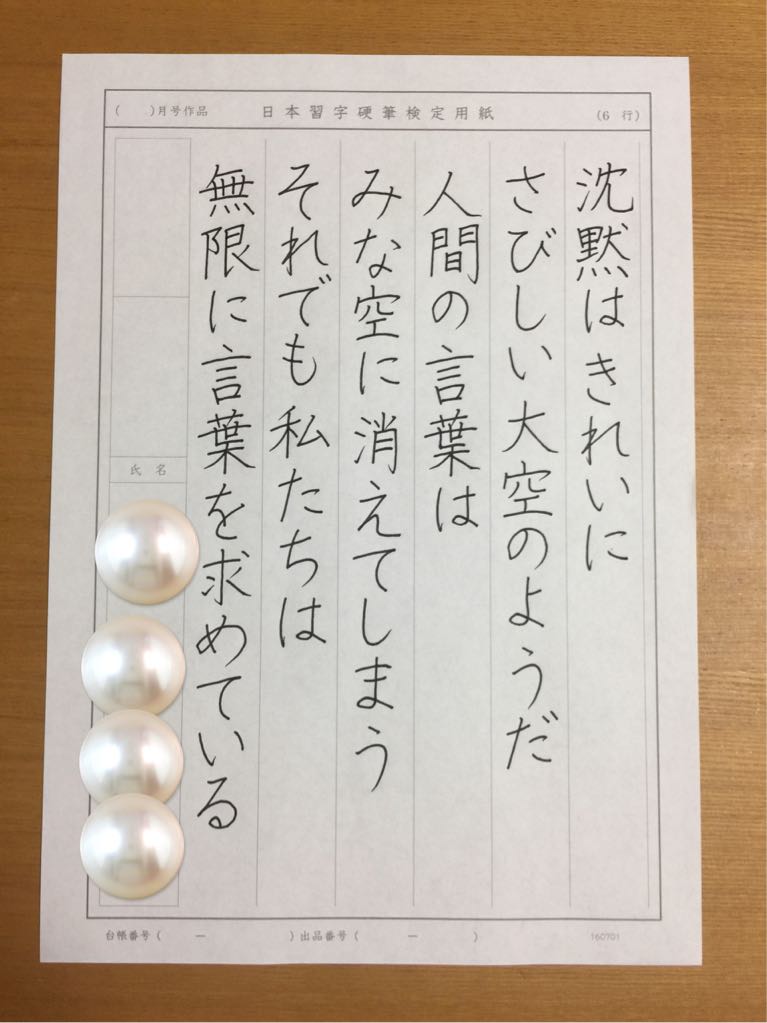 ( )月号作品 日本習字硬筆検定用紙 (6 行)
沈黙はきれいに
さびしい大空のようだ
人間の言葉は
みな空に消えてしまう
それでも私たちは
無限に言葉を求めている
氏名
台帳番号( ー )出品番号( ー )
160701